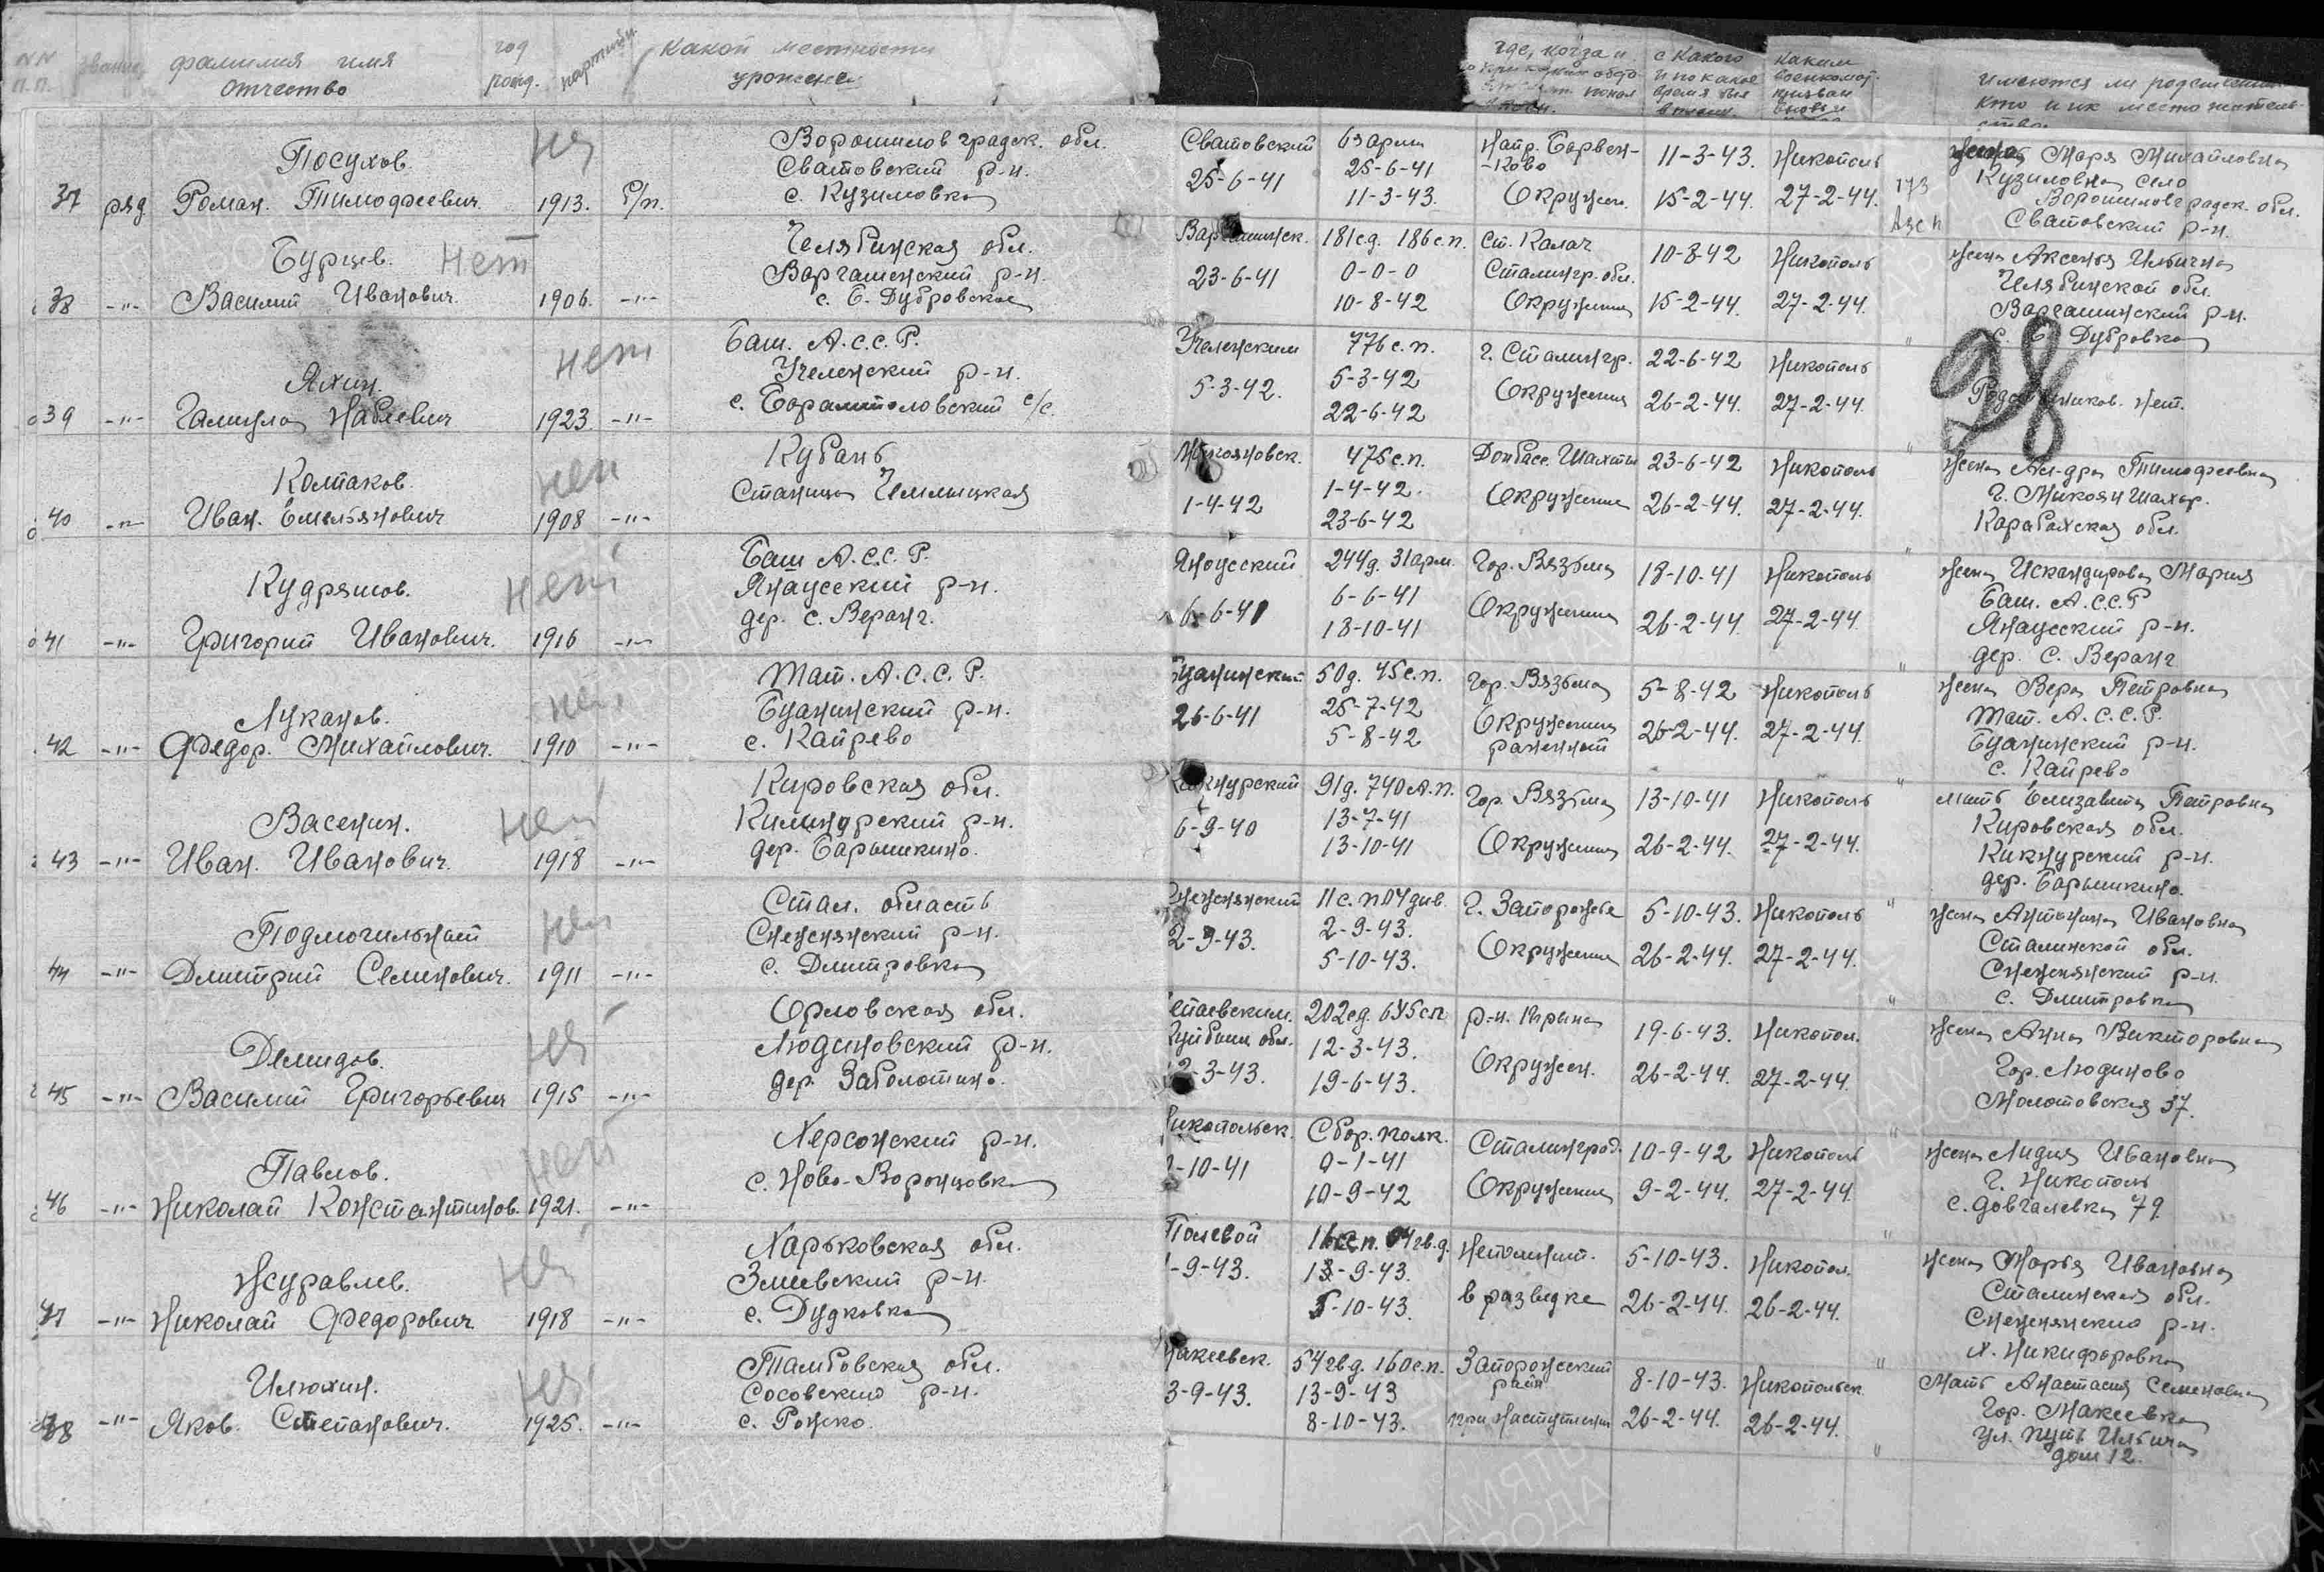 NN п.п. звание фамилия имя отчество год рожд. партийн какой местности уроженец
где, когда и
с какого и по какое время был в плену.
каким военкомат. призван вновь и
имеются ли родственники кто и их место жительства
37 ряд Посухов. Роман. Тимофеевич. 1913. б/п. нет
Ворошиловградск. обл.
Сватовский р-н.
с. Кузимовка
Сватовский 25-6-41
63 арм 25-6-41 11-3-43.
Напр. Барвен-
-ково Окружен.
11-3-43. 15-2-44.
Никополь 27-2-44.
173 Азсп
жена Маря Михайловна
Кузиловна село
Ворошиловградск. обл.
Сватовский р-н.
38 -"- Бурцев. Василий Иванович. 1906. -"- нет
Челябинская обл.
Варгашенский р-н.
с. Б. Дубровское
Варгашинск. 23-6-41
181 сд. 186 с.п. 0-0-0 10-8-42
Ст. Калач Сталингр. обл. Окружения
10-8-42 15-2-44.
Никополь 27-2-44.
жена Аксенья Ильична
Челябинской обл.
Варгашинский р-н.
с. Б. Дубровка
39 -"- Яхин. Галиула Набеевич 1923 -"- нет
Баш. А.С.С.Р.
Учеленский р-н.
с/с.
Учеленским 5-3-42.
776 с.п. 5-3-42 22-6-42
г. Сталингр. Окружения
22-6-42 26-2-44.
Никополь 27-2-44.
98
Родственников. нет.
40 -"- Колпаков. Иван. Емельянович 1908 -"- нет
Кубань
Станица
Микояновск. 1-4-42
475 с.п. 1-4-42. 23-6-42
Донбасс. Шахты Окружение
23-6-42 26-2-44.
Никополь 27-2-44.
жена Ал-дра Тимофеевна
г. Микоян Шахар.
Карабахская обл.
41 -"- Кудряшов. Григорий Иванович. 1916 -"- нет
Баш А.С.С.Р.
Янаусский р-н.
дер. с. Веранг.
Яноусский 6-6-41
244 д. 31 арм. 6-6-41 18-10-41
Гор. Вязьма Окружения
18-10-41 26-2-44.
Никополь 27-2-44
жена Искандирова Мария
Баш. А.С.С.Р
Янаусский р-н.
дер. с. Веранг
42 -"- Луканов. Федор. Михайлович. 1910 -"- нет
Тат. А.С.С.Р.
Буанинский р-н.
с. Кайрево
Буанинский 26-6-41
50 д. 45 с.п. 25-7-42 5-8-42
Гор. Вязьма Окружения раненный
5-8-42 26-2-44.
Никополь 27-2-44.
жена Вера Петровна
Тат. А.С.С.Р.
Буанинский р-н.
с. Кайрево
43 -"- Васенин. Иван. Иванович. 1918 -"- нет
Кировская обл.
р-н.
дер. Барышкино.
Кикнурский 6-9-40
91 д. 740 А.п. 13-7-41 13-10-41
Гор. Вязьма Окружения
13-10-41 26-2-44.
Никополь 27-2-44.
мать Елизавета Петровна
Кировская обл.
Кикнурский р-н.
дер. Барышкино.
44 -"- Подмогильный Дмитрий Семинович. 1911 -"- нет
Стал. область
Снежнянский р-н.
с. Дмитровка
Снежнянский 2-9-43.
11 с.п 04 див. 2-9-43. 5-10-43.
г. Запорожье Окружения
5-10-43. 26-2-44.
Никополь 27-2-44.
жена Антонина Ивановна
Сталинской обл.
Снежнянский р-н.
с. Дмитровка
45 -"- Демидов. Василий Григорьевич 1915 -"- нет
Орловская обл.
Людиновский р-н.
дер. Заболотино.
Чепаевским. Куйбыш обл. 12-3-43.
202 сд. 645 сп 12-3-43. 19-6-43.
р-н. Окружен.
19-6-43. 26-2-44.
Никопол. 27-2-44
жена Анна Викторовна
Гор. Людиново
Молотовская 37.
46 -"- Павлов. Николай Константинов. 1921. -"- нет
Херсонский р-н.
с. Ново-Воронцовка
Никопольск. -10-41
Сбор. полк. 0-1-41 10-9-42
Сталинград. Окружения
10-9-42 9-2-44.
Никополь 27-2-44
жена Лидия Ивановна
г. Никополь
с. Довгалевка 79.
47 -"- Журавлев. Николай Федорович 1918 -"- нет
Харьковская обл.
Змиевский р-н.
с. Дудковка
Полевой -9-43.
гв.д. 13-9-43. 5-10-43.
в разведке
5-10-43. 26-2-44.
Никопол. 26-2-44.
жена Марья Ивановна
Сталинская обл.
Снежнянского р-н.
х. Никифоровка
48 -"- Илюхин. Яков. Степанович. 1925. -"- нет
Тамбовская обл.
Сосовского р-н.
с. Рожко.
Макеевск. 3-9-43.
54 гв д. 160 с.п. 13-9-43 8-10-43.
Запорожский район при наступлении
8-10-43. 26-2-44.
Никопольск. 26-2-44.
Мать Анастасия Семеновна
Гор. Макеевка
ул. путь Ильича
дом 12.
ПАМЯТЬ НАРОДА